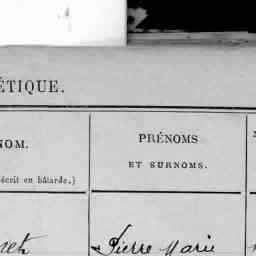 ÉTIQUE.
NOM.
PRÉNOMS
ET SURNOMS.
écrit en bâtarde.)
Pierre Marie